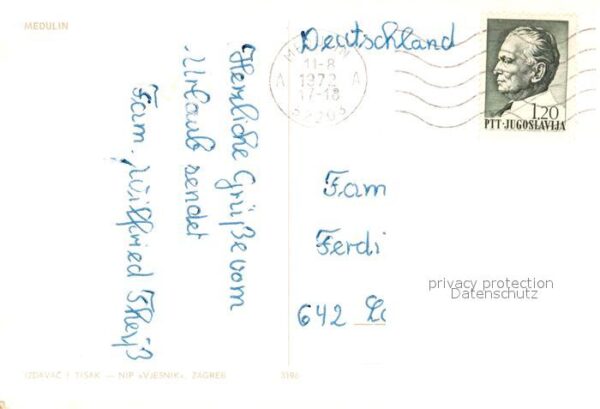 MEDULIN
Herzliche Grüße vom
Urlaub sendet
Fam. Wilfried
Deutschland
11-8
1972
A A
17-18
1.20
PTT-JUGOSLAVIJA
Fam
Ferdi
642
privacy protection
Datenschutz
IZDAVAČ I TISAK — NIP »VJESNIK«, ZAGREB
3196